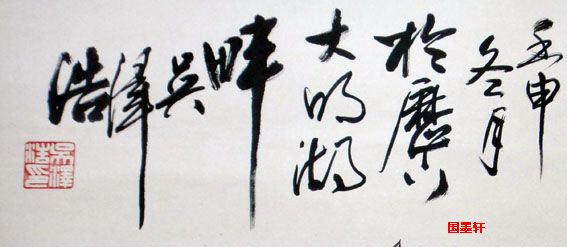 壬申
冬月
於歷下
大明湖
畔
吴
澤
浩
吳澤
浩印
国墨轩